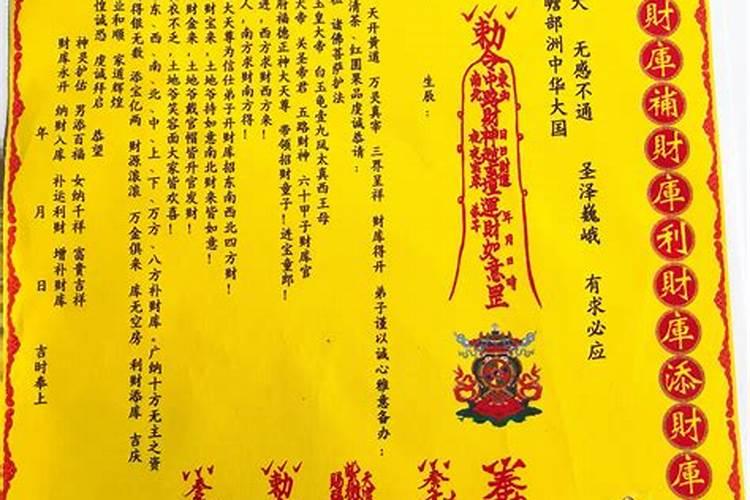 財庫補財庫利財庫添財庫
無感不通　聖泽巍峨　有求必应
瞻部洲中华大国
勅令中路財神趙玄壇運財如意罡
年月日時
生辰：
天开黄道　万灵真宰　三界呈祥　财库得开　弟子谨以诚心雅意备办：
清茶、红圆果品虔诚恭请：
诸佛菩萨护法
玉皇大帝　白玉龟壹九凤太真西王母
大帝　关圣帝君　五路财神　六十甲子财库官
府福德正神大天尊　带领招财童子！进宝童郎！
进，西方求财西方来！
人，南方求财南方得！
大天尊为信仕弟子开财库招东南西北四方财！
财宝来，土地爷持如意南北财来皆如意！
财金来，土地爷戴官帽皆升官发财！
衣不乏，土地爷笑容面大家皆欢喜！
东、西、南、北、中、上、下、万方、八方补财库。广纳十方无主之资
得银无数　添宝亿两　财源滚滚　万金俱来　库无空房　利财添库　吉庆
业和顺　家道辉煌
惶诚恐　虔诚拜启　恭望
神灵护佑　男添百福　女纳千祥　富贵吉祥
财库永开　纳财入库　补运利财　增补财库
年　月　日　吉时奉上